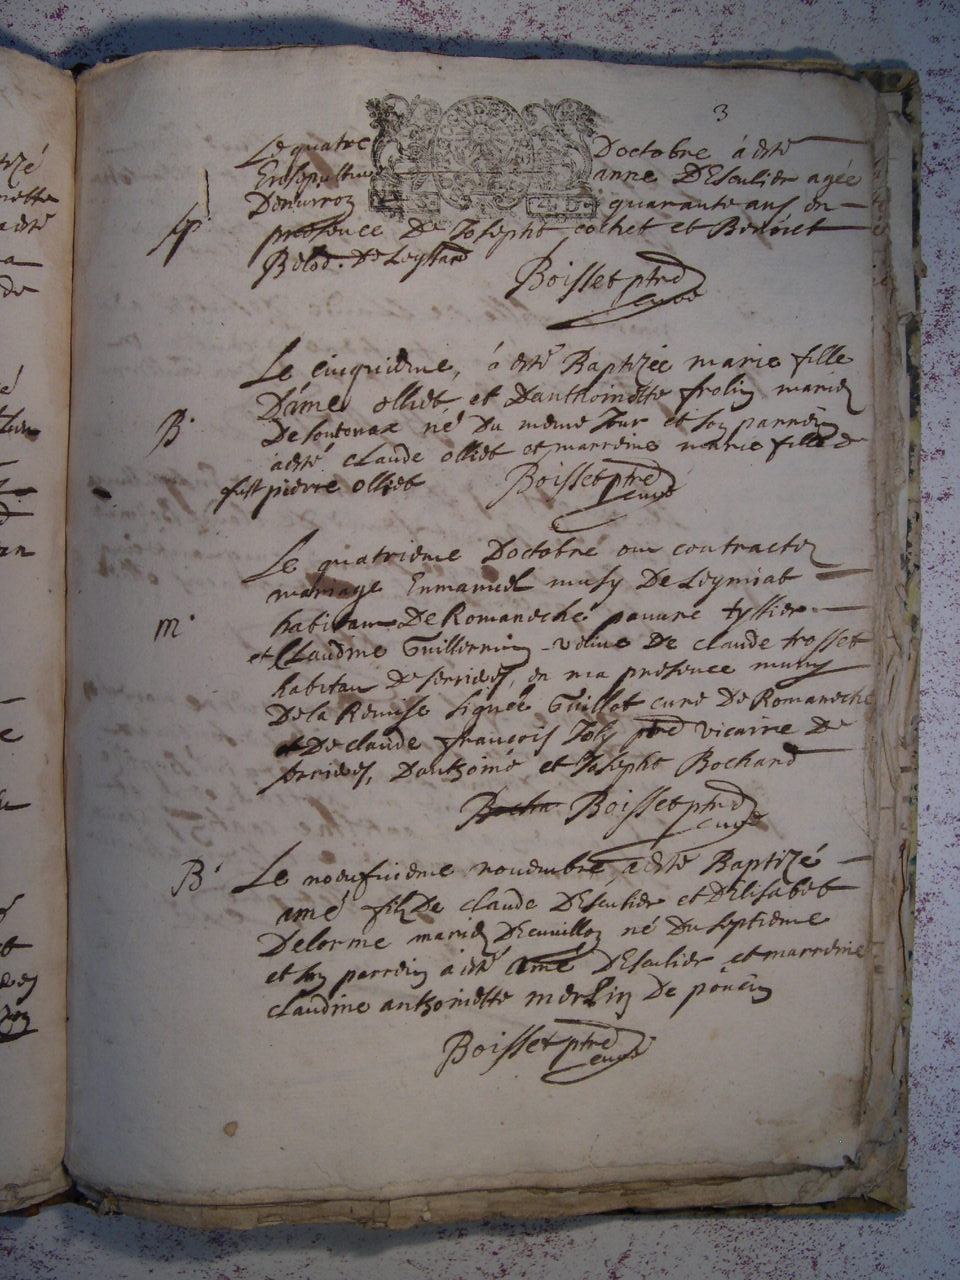 3
Le quatre Doctobre a esté
Ensepulture anne DEsculier agée
Denuiron quarante ans en
Sp.
presence De Joseph cochet et Benoict
Belod. De Leyssard
Boisset ptre
curé
Le cinquieme, a esté Baptizée marie fille
Damé olliet et Danthoinette frolin mariez
B.
De sontonax né Du meme Jour et son parrein
a esté claude olliet et marreine marie fille de
fust pierre olliet Boisset ptre
curé
Le quatrieme Doctobre ont contracté
mariage Enmanuel musy De Leymiat
m.
habitant De Romaneche pauure tyssier
et Claudine Guillermin vefue De claude trosset
habitan De serrieres, en ma presence munis
De la Remise signée Guillot curé De Romaneche
et De claude francois Joly ptre vicaire De
serrieres, Danthoine et Joseph Bochard
Bocha Boisset ptre
curé
B. Le noeufuieme nouembre a esté Baptizé
amé filz De claude DEsculier et DElisabet
Delorme mariez né Du septieme
et son parrein a esté amé DEsculier et marreine
claudine anthoinette merlin De poncin
Boisset ptre
curé